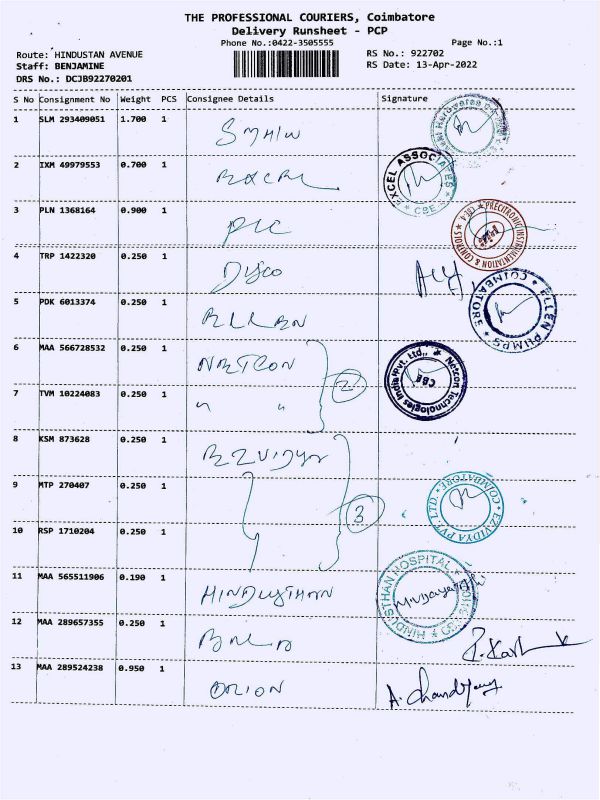 THE PROFESSIONAL COURIERS, Coimbatore
Delivery Runsheet - PCP
Phone No.:0422-3505555
Page No.:1
Route: HINDUSTAN AVENUE
RS No.: 922702
Staff: BENJAMINE
RS Date: 13-Apr-2022
DRS No.: DCJB92270201
S No Consignment No Weight PCS Consignee Details Signature
1 SLM 293409051 1.700 1
2 IXM 49979553 0.700 1
EXCEL ASSOCIATES CBE
3 PLN 1368164 0.900 1 PIC
PRECITRONIC INSTRUMENTATION & CONTROL STORE
4 TRP 1422320 0.250 1 Dysco
5 PDK 6013374 0.250 1 ELLEN
ELLEN PUMPS COIMBATORE
6 MAA 566728532 0.250 1 NETCON
2
Netcon Technologies India Pvt. Ltd., CBE
7 TVM 10224083 0.250 1 " "
8 KSM 873628 0.250 1 EZVIDYA
9 MTP 270407 0.250 1
3
EZ VIDYA PVT. LTD. COIMBATORE
10 RSP 1710204 0.250 1
11 MAA 565511906 0.190 1 HINDUSTHAN
HINDUSTHAN HOSPITAL
12 MAA 289657355 0.250 1
13 MAA 289524238 0.950 1 ORION